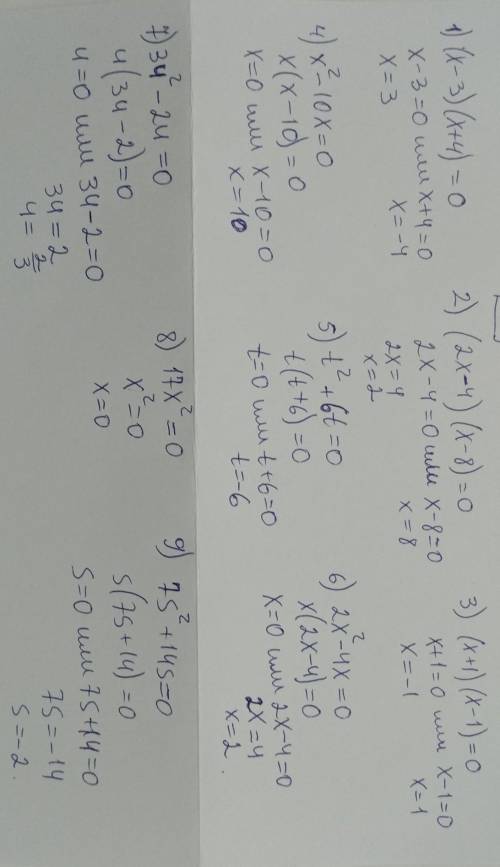 1) (x-3)(x+4)=0
x-3=0 или x+4=0
x=3 x=-4
2) (2x-4)(x-8)=0
2x-4=0 или x-8=0
2x=4 x=8
x=2
3) (x+1)(x-1)=0
x+1=0 или x-1=0
x=-1 x=1
4) x²-10x=0
x(x-10)=0
x=0 или x-10=0
x=10
5) t²+6t=0
t(t+6)=0
t=0 или t+6=0
t=-6
6) 2x²-4x=0
x(2x-4)=0
x=0 или 2x-4=0
2x=4
x=2.
7) 3u²-2u=0
u(3u-2)=0
u=0 или 3u-2=0
3u=2
u=2/3
8) 17x²=0
x²=0
x=0
9) 7s²+14s=0
s(7s+14)=0
s=0 или 7s+14=0
7s=-14
s=-2.